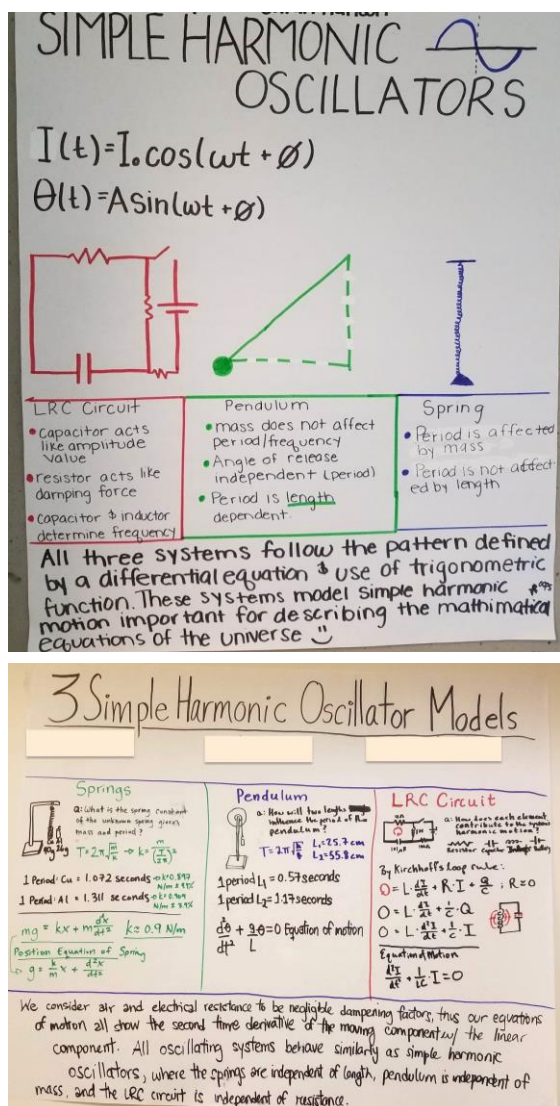 SIMPLE HARMONIC
OSCILLATORS
I(t)=I₀cos(ωt+ø)
θ(t)=Asin(ωt+ø)
LRC Circuit
• capacitor acts
like amplitude
value
• resistor acts like
damping force
• capacitor & inductor
determine frequency
Pendulum
• mass does not affect
period/frequency
• Angle of release
independent (period)
• Period is length
dependent.
Spring
• Period is affected
by mass
• Period is not affect
ed by length
All three systems follow the pattern defined
by a differential equation & use of trigonometric
function. These systems model simple harmonic
motion important for describing the mathimatical
equations of the universe
3 Simple Harmonic Oscillator Models
Springs
Q: What is the spring constant
of the unknown spring given
mass and period?
T=2π√m/k → k=
1 Period: Cu = 1.072 seconds
1 Period: Al = 1.311 seconds
mg = kx + m d²x/dt² k≈0.9 N/m
Position Equation of Spring
g = k/m x + d²x/dt²
Pendulum
Q: How will two lengths
influence the period of the
pendulum?
L₁=25.7cm
L₂=55.8cm
1 period L₁ = 0.57 seconds
1 period L₂ = 1.17 seconds
=0 Equation of motion
LRC Circuit
Q: How does each element
contribute to the
harmonic motion?
Resistor
By Kirchhoff's loop rule:
0 = L·dI/dt + R·I + Q/C ; R=0
0 = L·dI/dt + 1/C·Q
0 = L·d²I/dt² + 1/C·I
Equation of Motion
d²I/dt² + 1/LC·I=0
We consider air and electrical resistance to be negligible dampening factors, thus our equations
of motion all show the second time derivative of the moving component w/ the linear
component. All oscillating systems behave similarly as simple harmonic
oscillators, where the springs are independent of length, pendulum is independent of
mass, and the LRC circuit is independent of resistance.